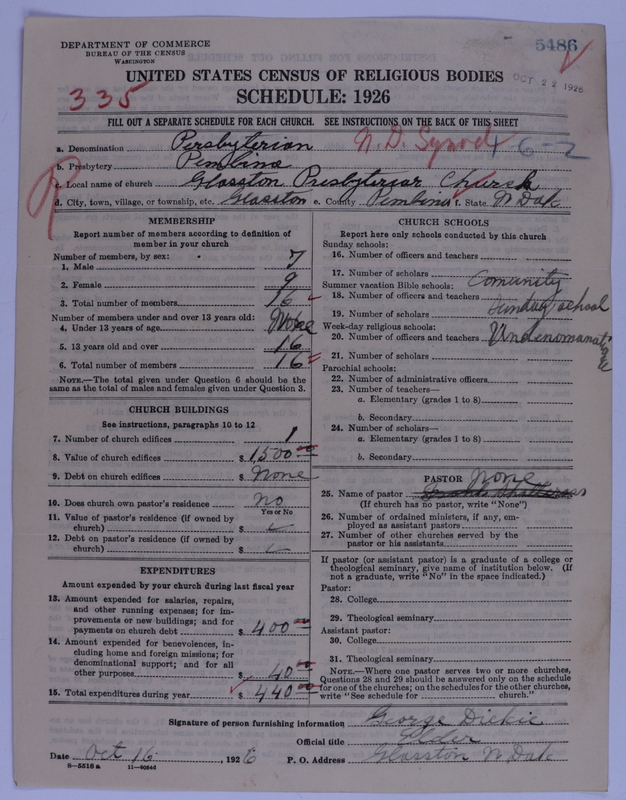 DEPARTMENT OF COMMERCE
BUREAU OF THE CENSUS
WASHINGTON
5486
OCT 22 1926
335
UNITED STATES CENSUS OF RELIGIOUS BODIES
SCHEDULE: 1926
FILL OUT A SEPARATE SCHEDULE FOR EACH CHURCH. SEE INSTRUCTIONS ON THE BACK OF THIS SHEET
a. Denomination Persbyterian N. D. Synod 46-2
b. Presbytery Pembina
c. Local name of church Glasston Presbyterian Church
d. City, town, village, or township, etc. Glasston e. County Pembina f. State N Dak
MEMBERSHIP
Report number of members according to definition of member in your church
Number of members, by sex:
1. Male 7
2. Female 9
3. Total number of members 16
Number of members under and over 13 years old:
4. Under 13 years of age None
5. 13 years old and over 16
6. Total number of members 16
NOTE.—The total given under Question 6 should be the same as the total of males and females given under Question 3.
CHURCH BUILDINGS
See instructions, paragraphs 10 to 12
7. Number of church edifices 1
8. Value of church edifices $ 1500 00
9. Debt on church edifices $ None
10. Does church own pastor's residence No
Yes or No
11. Value of pastor's residence (if owned by church) $
12. Debt on pastor's residence (if owned by church) $
EXPENDITURES
Amount expended by your church during last fiscal year
13. Amount expended for salaries, repairs, and other running expenses; for improvements or new buildings; and for payments on church debt $ 400 00
14. Amount expended for benevolences, including home and foreign missions; for denominational support; and for all other purposes $ 40 00
15. Total expenditures during year $ 440 00
CHURCH SCHOOLS
Report here only schools conducted by this church
Sunday schools:
16. Number of officers and teachers
17. Number of scholars
Summer vacation Bible schools: Comunity
18. Number of officers and teachers
Sunday school
19. Number of scholars
Week-day religious schools:
20. Number of officers and teachers
21. Number of scholars
Parochial schools:
22. Number of administrative officers
23. Number of teachers—
a. Elementary (grades 1 to 8)
b. Secondary
24. Number of scholars—
a. Elementary (grades 1 to 8)
b. Secondary
PASTOR
25. Name of pastor None
(If church has no pastor, write "None")
26. Number of ordained ministers, if any, employed as assistant pastors
27. Number of other churches served by the pastor or his assistants
If pastor (or assistant pastor) is a graduate of a college or theological seminary, give name of institution below. (If not a graduate, write "No" in the space indicated.)
Pastor:
28. College
29. Theological seminary
Assistant pastor:
30. College
31. Theological seminary
NOTE.—Where one pastor serves two or more churches, Questions 28 and 29 should be answered only on the schedule for one of the churches; on the schedules for the other churches, write "See schedule for church."
Signature of person furnishing information George Dickie
Official title Elder
Date Oct 16, 1926 P. O. Address Glasston N Dak
8—5516 a